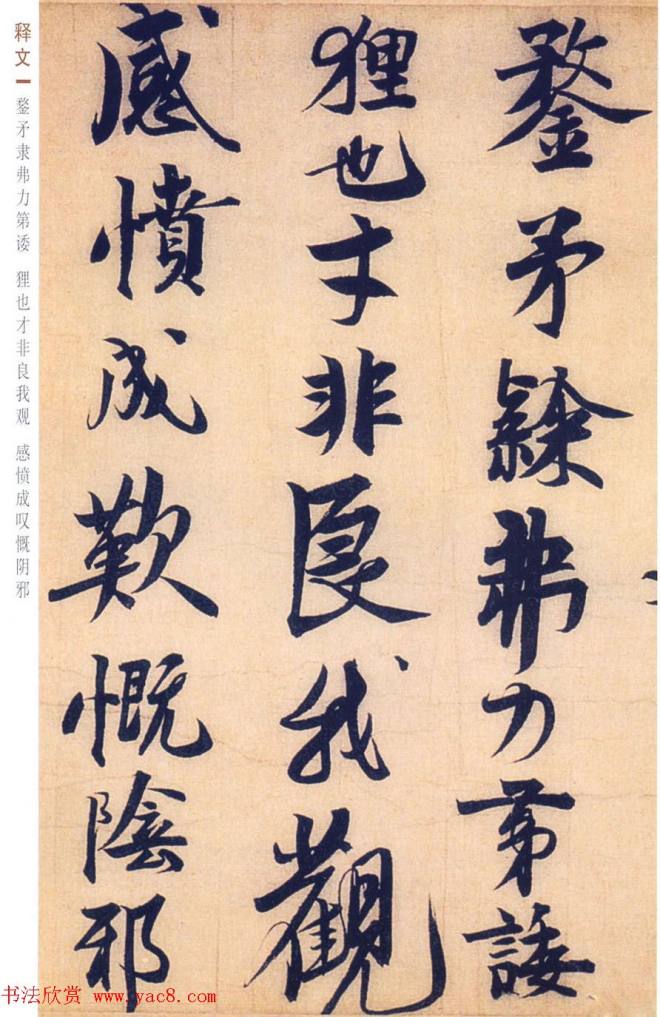 鍪矛隸弗力第諉
狸也才非良我觀
感憤成歎慨陰邪
释文
鍪矛隶弗力第诿 狸也才非良我观 感愤成叹慨阴邪
书法欣赏 www.yac8.com